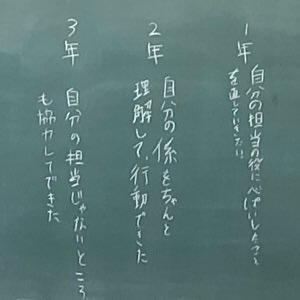 1年
自分の担当の役に心ぱいしたことを
を直していきたい。
2年
自分の係をちゃんと
理解して、行動できた
3年
自分の担当じゃないところ
も協力してできた